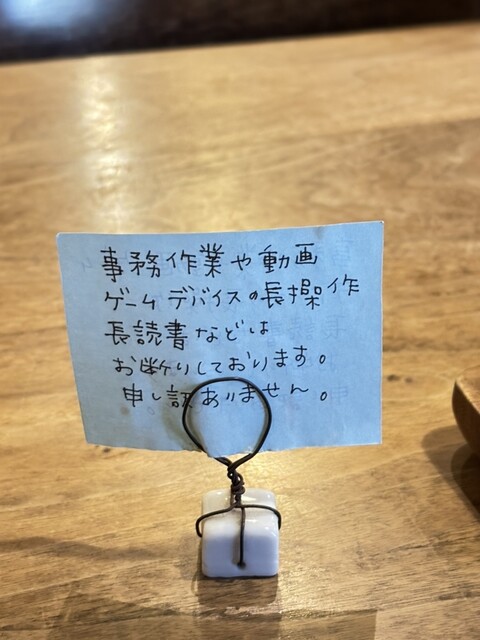 事務作業や動画
ゲームデバイスの長操作
長読書などは
お断りしております。
申し訳ありません。